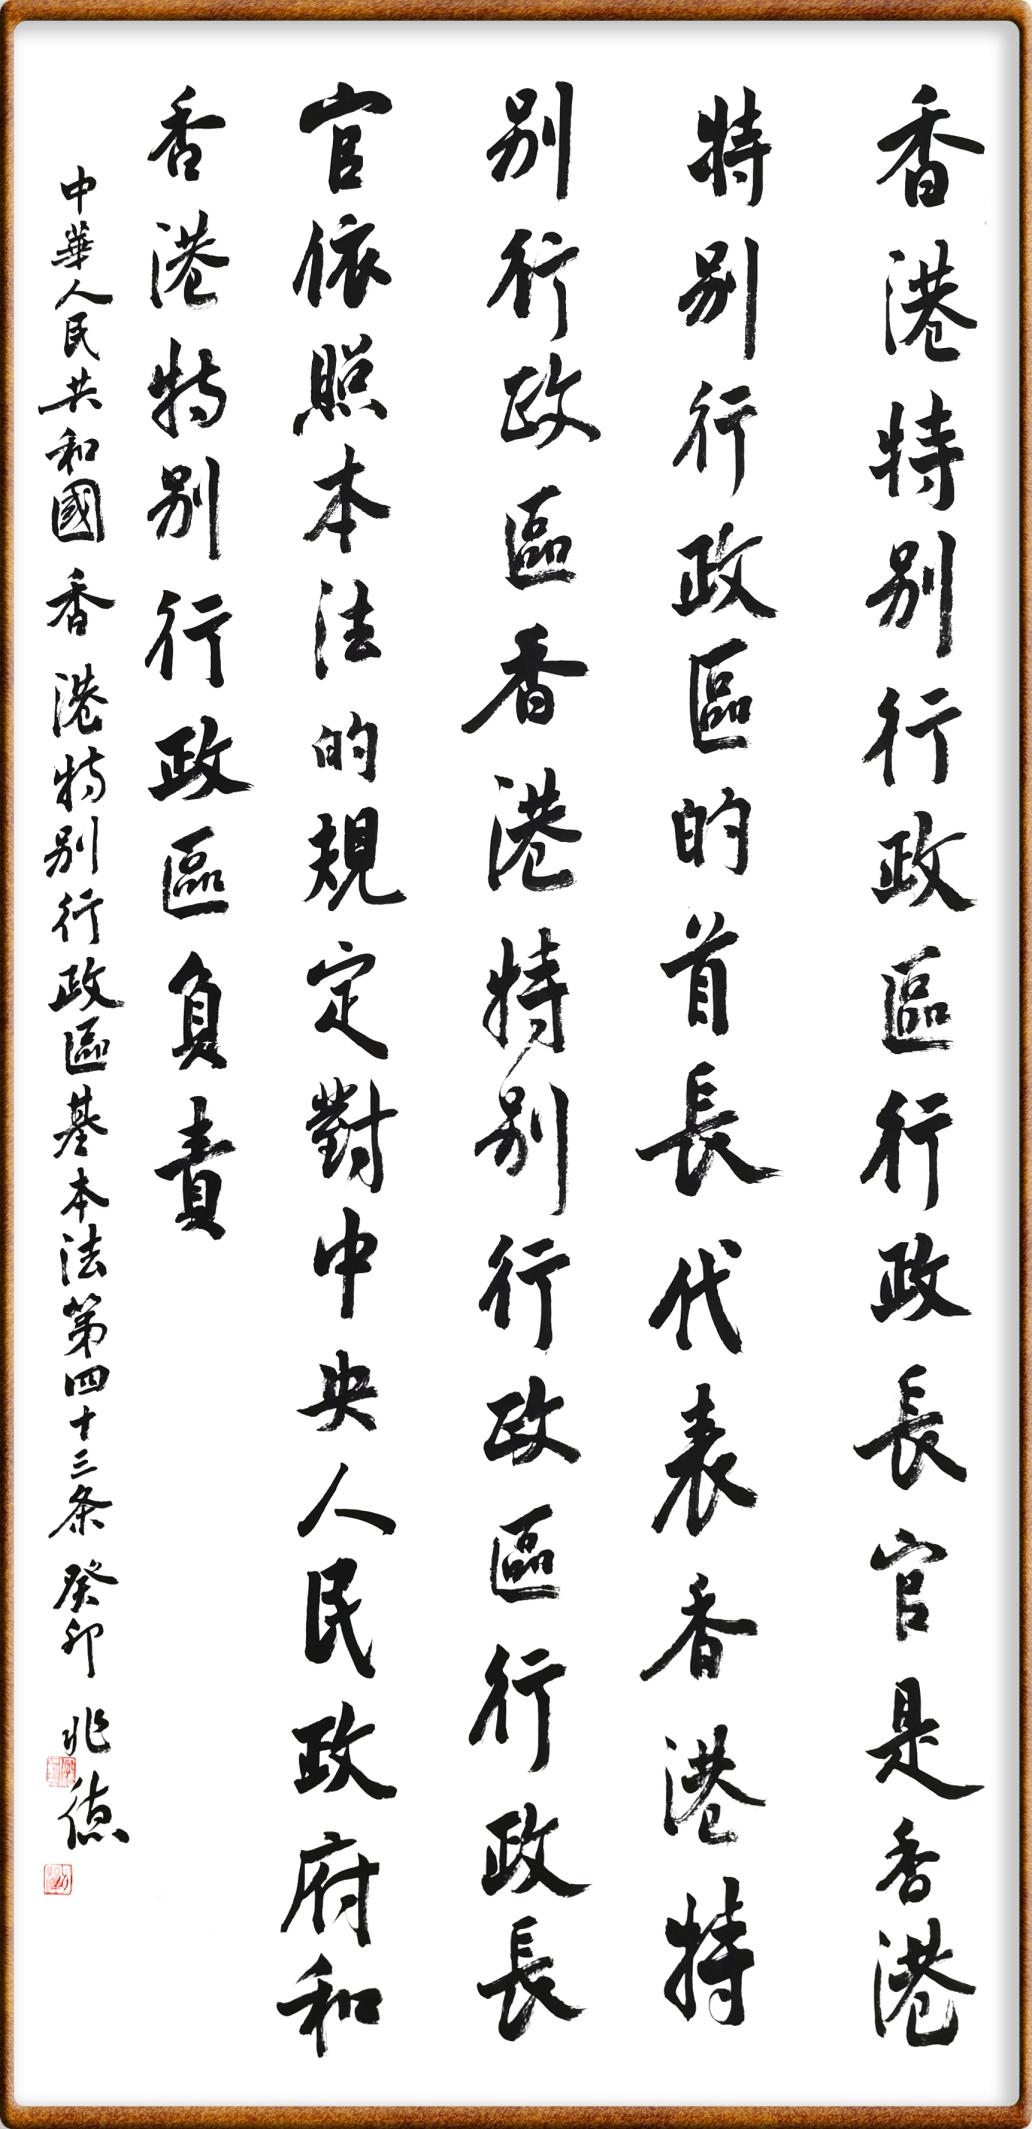 香港特别行政區行政長官是香港
特别行政區的首長代表香港特
别行政區香港特别行政區行政長
官依照本法的規定對中央人民政府和
香港特别行政區負責
中華人民共和國香港特别行政區基本法第四十三条癸卯兆德